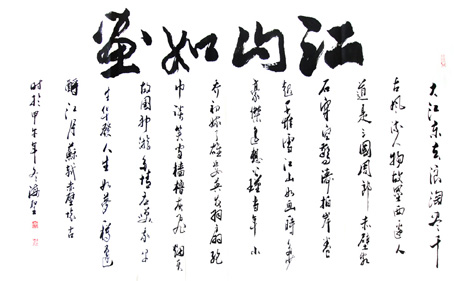 江山如画
大江东去浪淘尽千
古风流人物故垒西边人
道是三国周郎赤壁乱
石穿空惊涛拍岸卷
起千堆雪江山如画一时多少
豪傑遥想公瑾当年小
乔初嫁了雄姿英发羽扇纶
巾谈笑间樯橹灰飞烟灭
故国神游多情应笑我早
生华发人生如梦一樽还
酹江月苏轼赤壁怀古
时于甲午年冬海